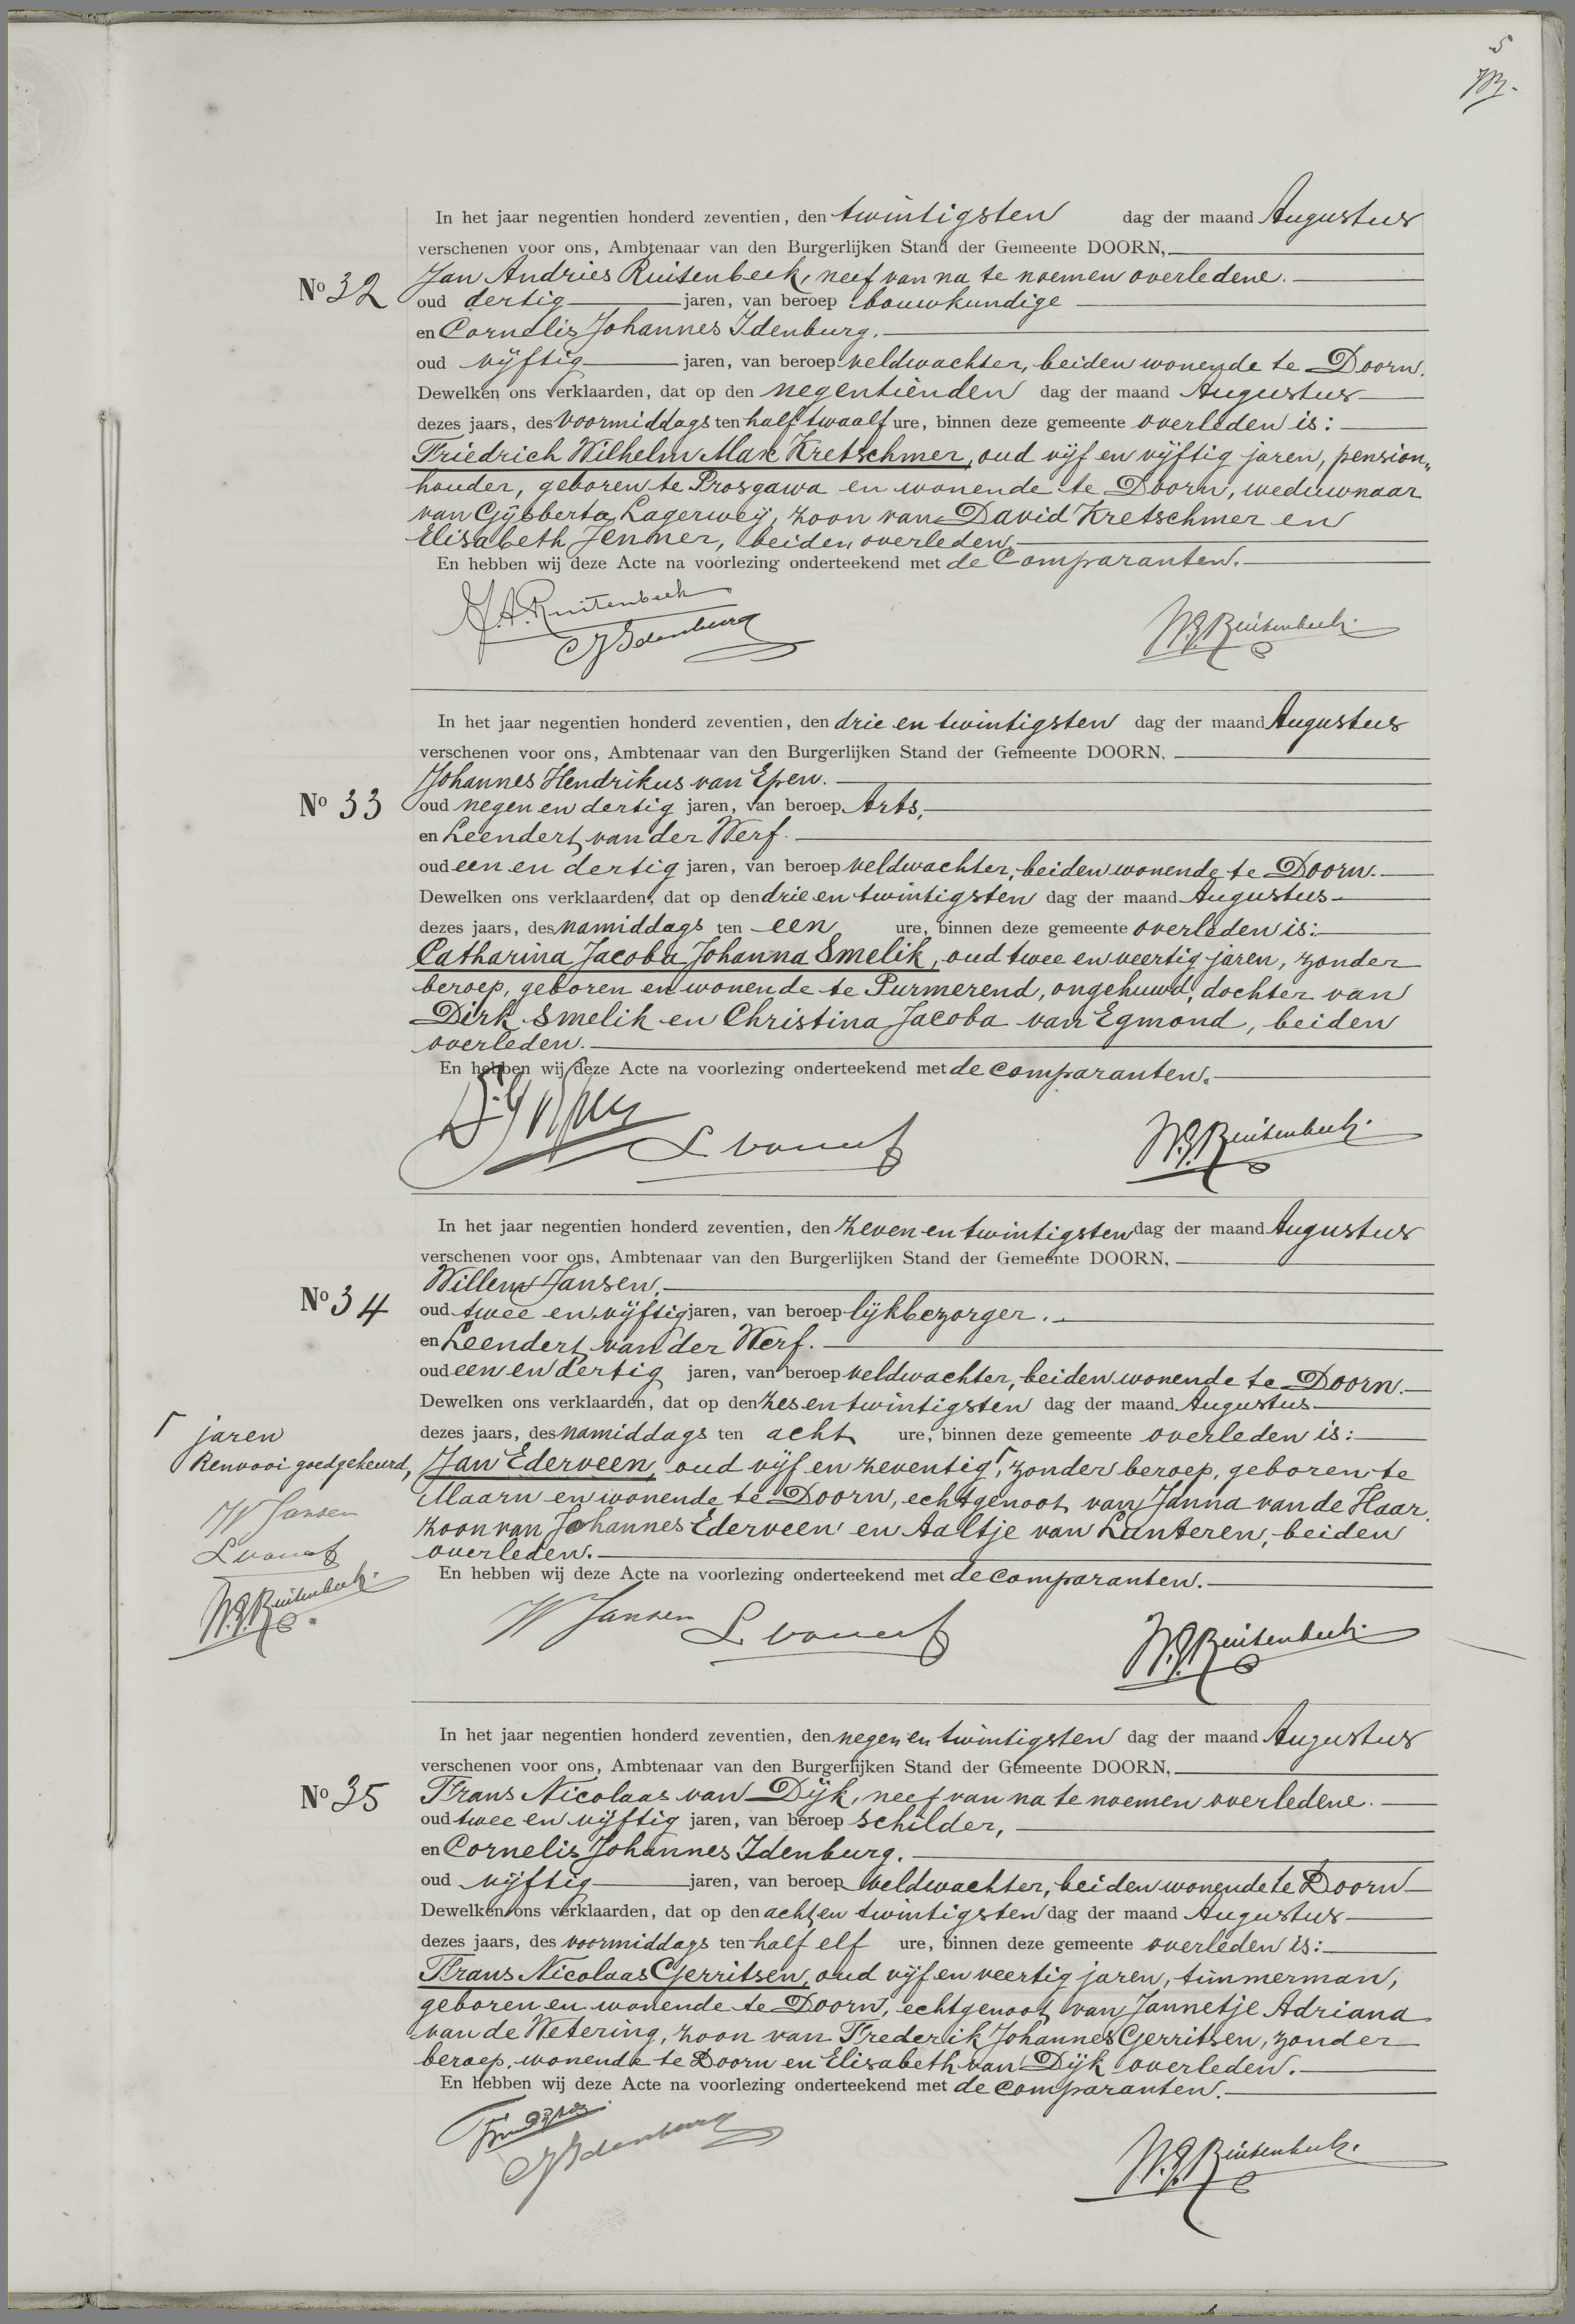 5
In het jaar negentien honderd zeventien, den twintigsten dag der maand Augustus
verschenen voor ons, Ambtenaar van den Burgerlijken Stand der Gemeente DOORN,
No 32 Jan Andries Ruitenbeek, neef van na te noemen overledene.
oud dertig jaren, van beroep bouwkundige
en Cornelis Johannes Idenburg.
oud vijftig jaren, van beroep veldwachter, beiden wonende te Doorn.
Dewelken ons verklaarden, dat op den negentienden dag der maand Augustus
dezes jaars, des voormiddags ten half twaalf ure, binnen deze gemeente overleden is:
Friedrich Wilhelm Max Kretschmer, oud vijf en vijftig jaren, pension„
houder, geboren te Prosgawa en wonende te Doorn, weduwnaar
van Gijsberta Lagerweij, zoon van David Kretschmer en
Elisabeth Jenner, beiden overleden.
En hebben wij deze Acte na voorlezing onderteekend met de Comparanten.
J.A. Ruitenbeek
CJ Idenburg
W.G. Ruitenbeek.
In het jaar negentien honderd zeventien, den drie en twintigsten dag der maand Augustus
verschenen voor ons, Ambtenaar van den Burgerlijken Stand der Gemeente DOORN,
Johannes Hendrikus van Epen.
No 33 oud negen en dertig jaren, van beroep Arts,
en Leendert van der Werf.
oud een en dertig jaren, van beroep veldwachter, beiden wonende te Doorn.
Dewelken ons verklaarden, dat op den drie en twintigsten dag der maand Augustus
dezes jaars, des namiddags ten een ure, binnen deze gemeente overleden is:
Catharina Jacoba Johanna Smelik, oud twee en veertig jaren, zonder
beroep, geboren en wonende te Purmerend, ongehuwd, dochter van
Dirk Smelik en Christina Jacoba van Egmond, beiden
overleden.
En hebben wij deze Acte na voorlezing onderteekend met de comparanten.
L vd Werf
W.G. Ruitenbeek.
In het jaar negentien honderd zeventien, den zeven en twintigsten dag der maand Augustus
verschenen voor ons, Ambtenaar van den Burgerlijken Stand der Gemeente DOORN,
Willem Jansen,
No 34 oud twee en vijftig jaren, van beroep lijkbezorger.
en Leendert van der Werf.
oud een en dertig jaren, van beroep veldwachter, beiden wonende te Doorn.
Dewelken ons verklaarden, dat op den zes en twintigsten dag der maand Augustus
dezes jaars, des namiddags ten acht ure, binnen deze gemeente overleden is:
Jan Ederveen, oud vijf en zeventig⌈, zonder beroep, geboren te
Maarn en wonende te Doorn, echtgenoot van Janna van de Haar,
zoon van Johannes Ederveen en Aaltje van Lunteren, beiden
overleden.
En hebben wij deze Acte na voorlezing onderteekend met de comparanten.
⌈ jaren
Renvooi goedgekeurd,
W Jansen
L vd Werf
W.G. Ruitenbeek.
W Jansen
L vd Werf
W.G. Ruitenbeek.
In het jaar negentien honderd zeventien, den negen en twintigsten dag der maand Augustus
verschenen voor ons, Ambtenaar van den Burgerlijken Stand der Gemeente DOORN,
No 35 Frans Nicolaas van Dijk, neef van na te noemen overledene.
oud twee en vijftig jaren, van beroep schilder,
en Cornelis Johannes Idenburg.
oud vijftig jaren, van beroep veldwachter, beiden wonende te Doorn
Dewelken ons verklaarden, dat op den acht en twintigsten dag der maand Augustus
dezes jaars, des voormiddags ten half elf ure, binnen deze gemeente overleden is:
Frans Nicolaas Gerritsen, oud vijf en veertig jaren, timmerman,
geboren en wonende te Doorn, echtgenoot van Jannetje Adriana
van de Wetering, zoon van Frederik Johannes Gerritsen, zonder
beroep, wonende te Doorn en Elisabeth van Dijk overleden.
En hebben wij deze Acte na voorlezing onderteekend met de comparanten.
CJ Idenburg
W.G. Ruitenbeek.